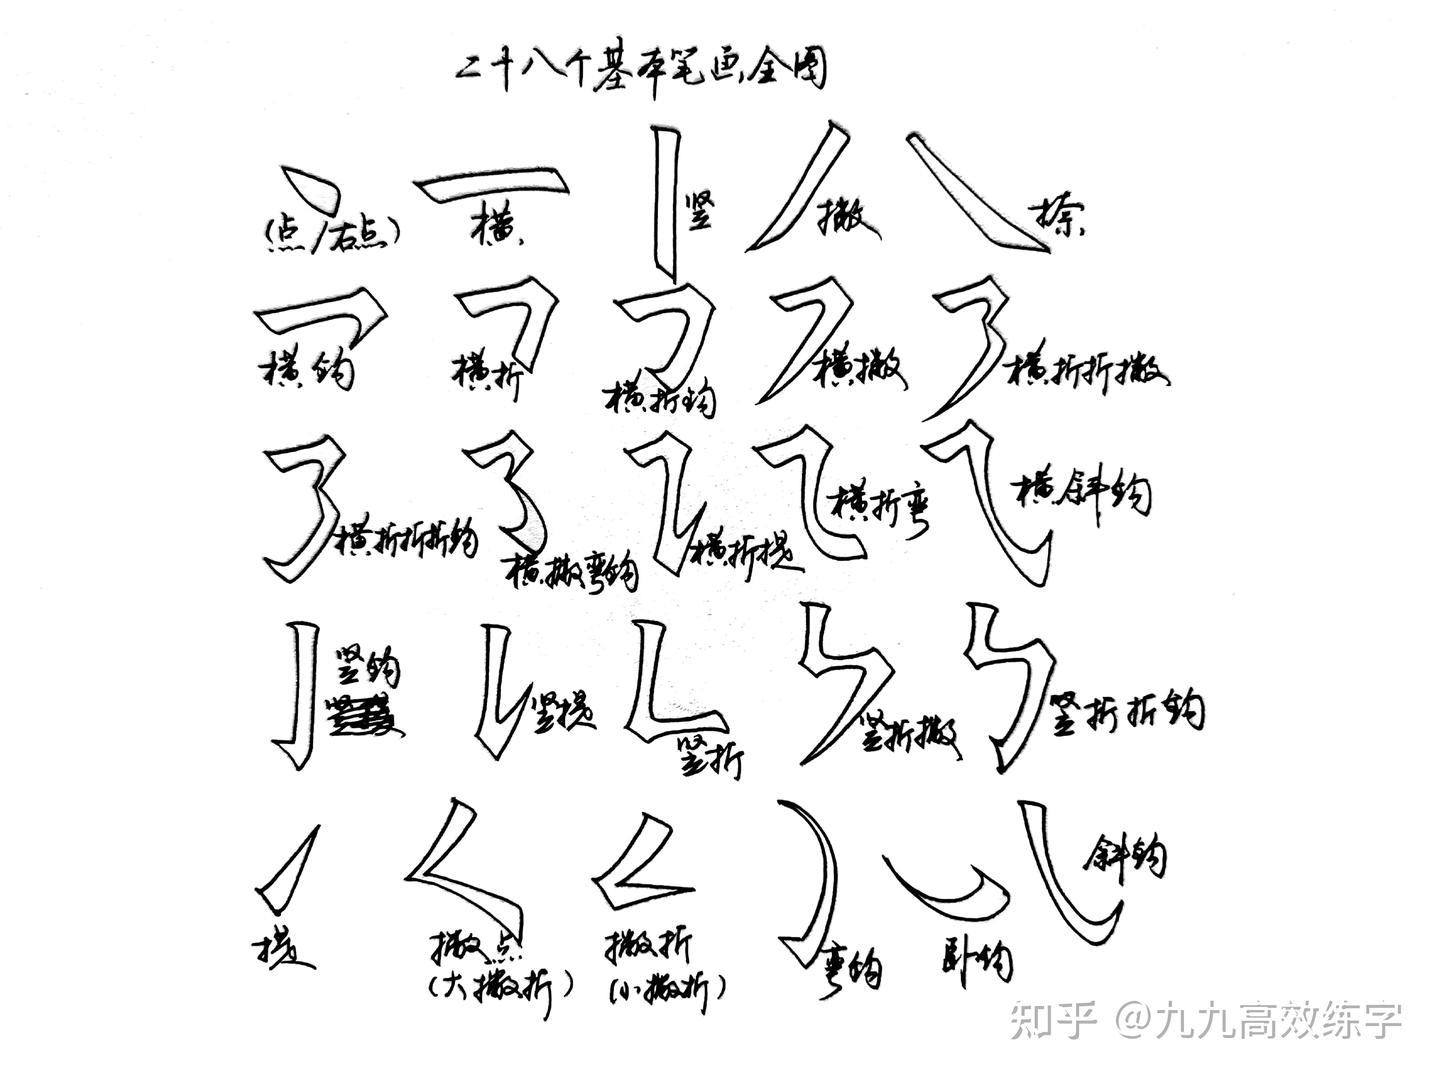 二十八个基本笔画全图
(点/右点) 横 竖 撇 捺
横钩 横折 横折钩 横撇 横折折撇
横折折折钩 横撇弯钩 横折提 横折弯 横斜钩
竖钩 竖提 竖折 竖折撇 竖折折钩
提 撇点 撇折 弯钩 卧钩 斜钩
(大撇折) (小撇折)
知乎 @九九高效练字